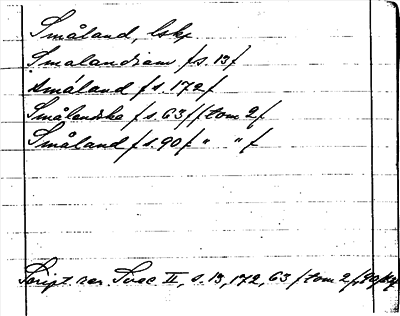 Småland, lskp
Smalandiam /s. 13/
småland /s. 172/
Småländska /s. 63/ /tom 2/
Småland /s. 90/ " " /
Script. rer. Svec. II, s. 13, 172, 63 /tom 2/, 90